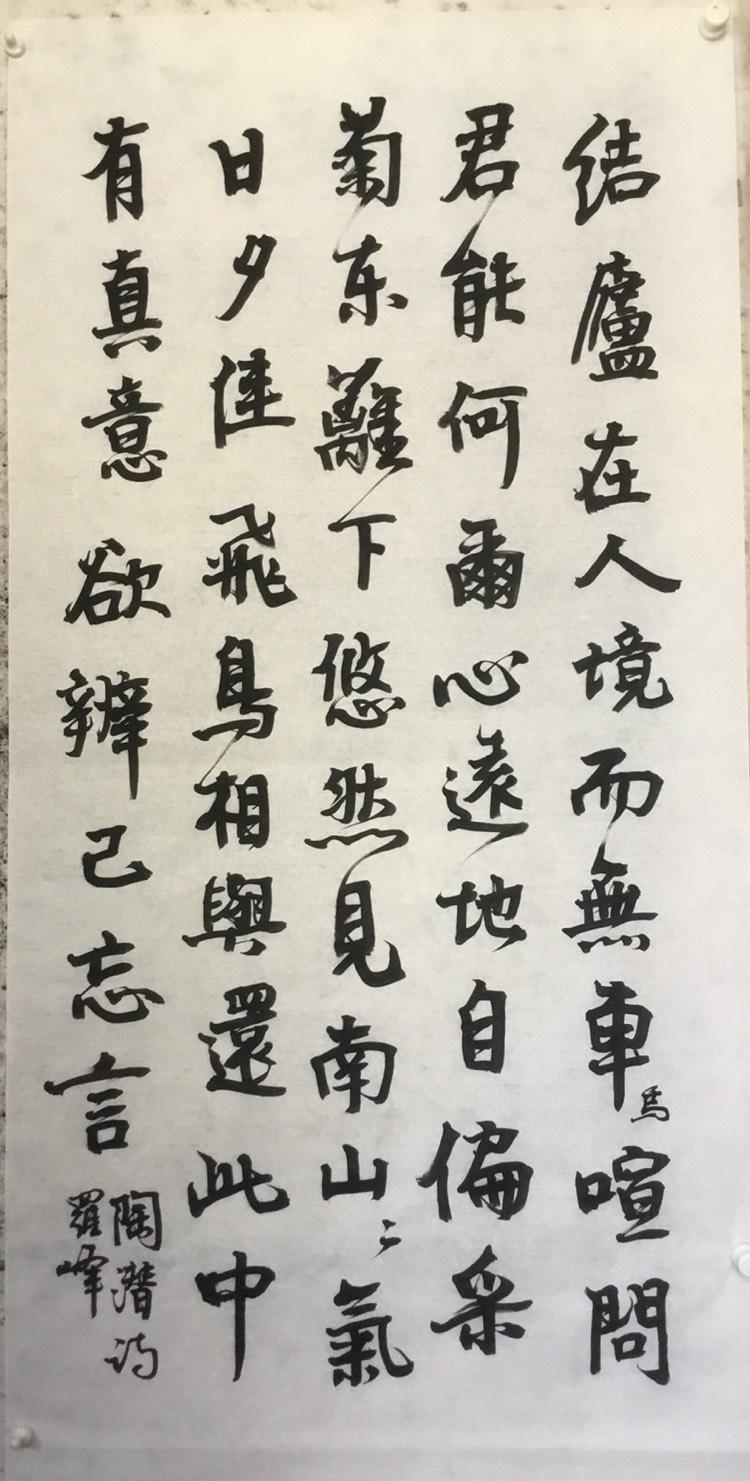 结廬在人境而無車馬喧問
君能何爾心遠地自偏采
菊东離下悠然見南山〻氣
日夕佳飛鳥相與還此中
有真意欲辨己忘言
陶潜诗
羅峰